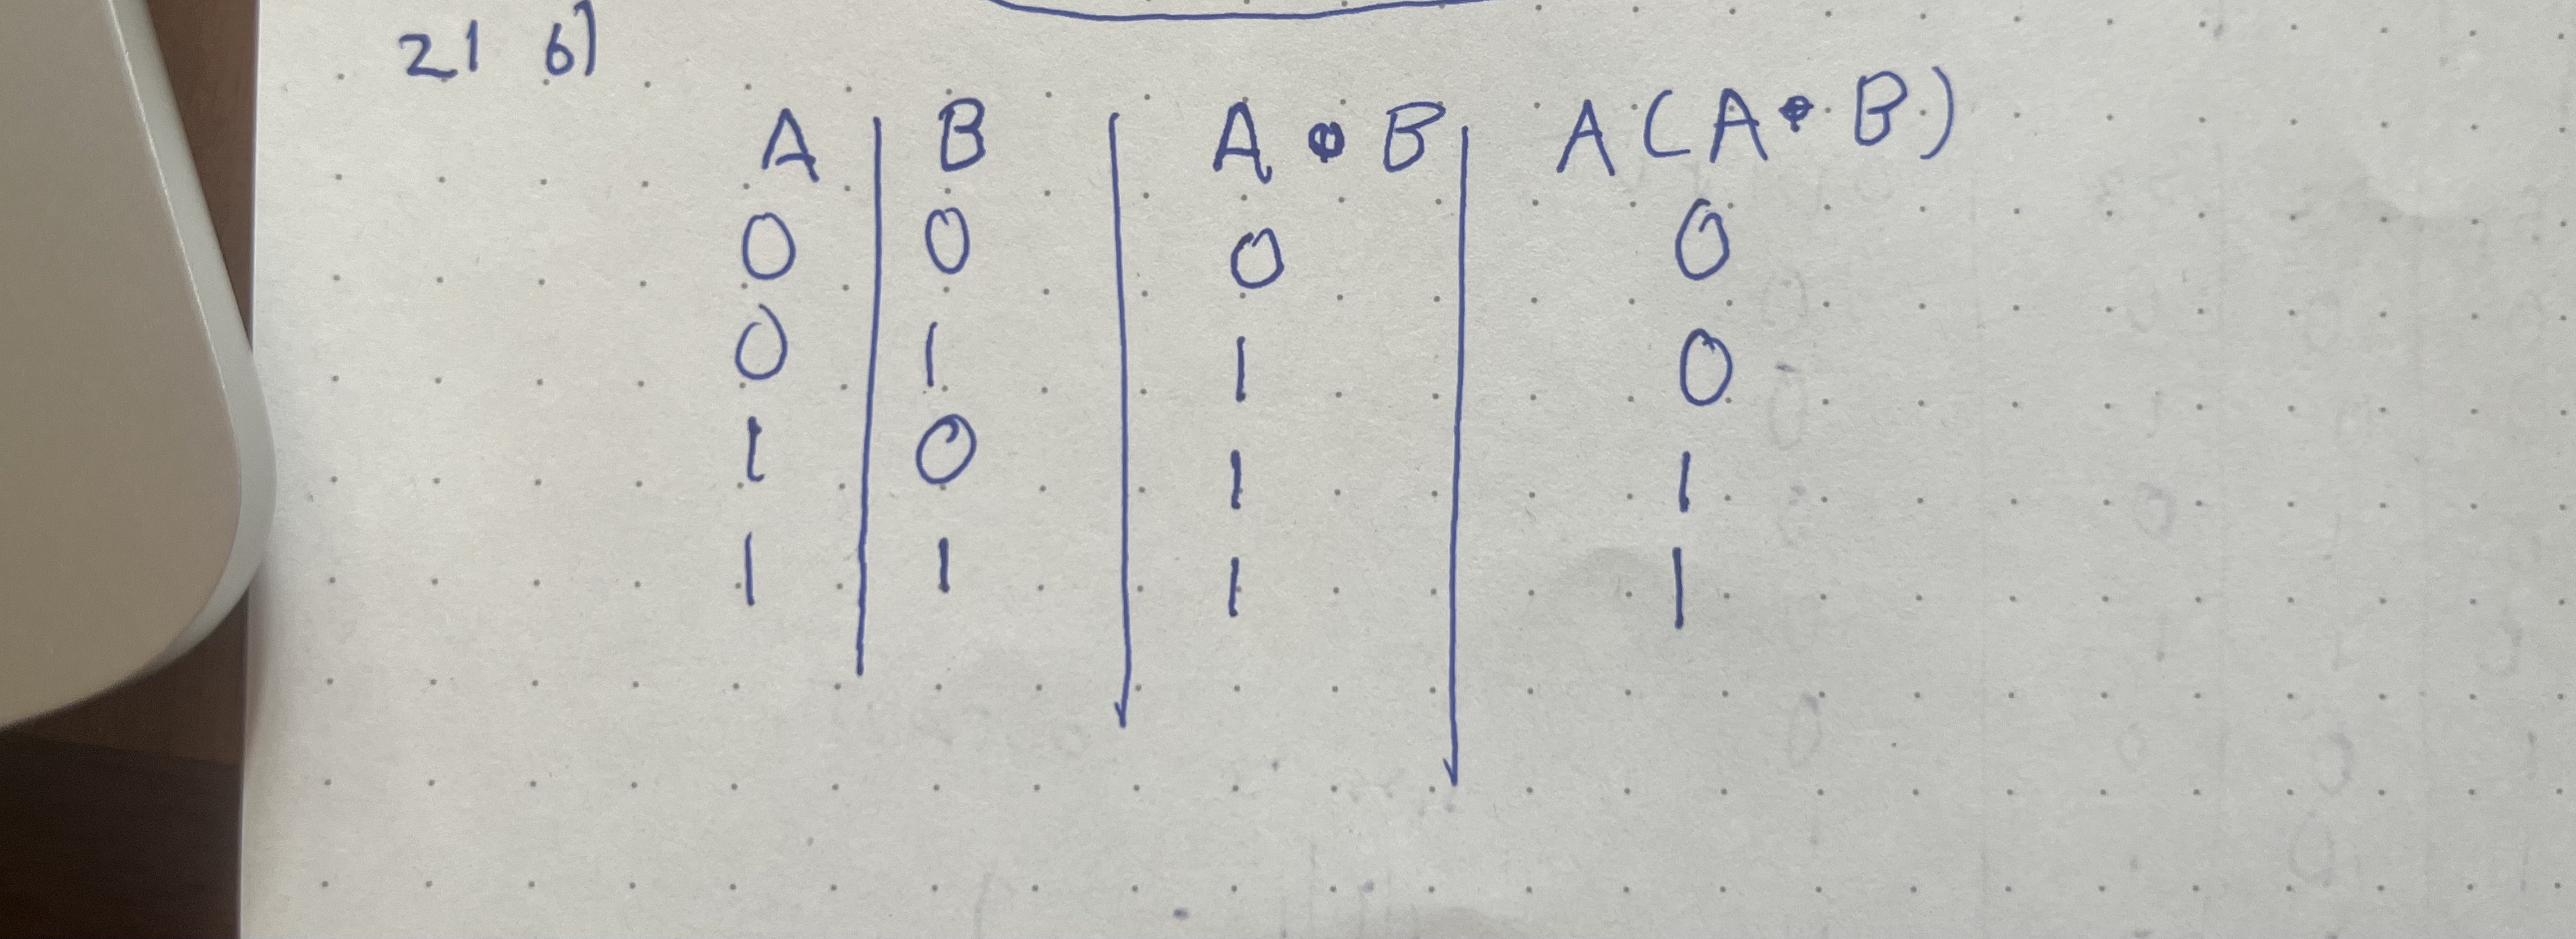 21 6)
A | B | A • B | A (A • B)
0 0 0 0
0 1 1 0
1 0 1 1
1 1 1 1